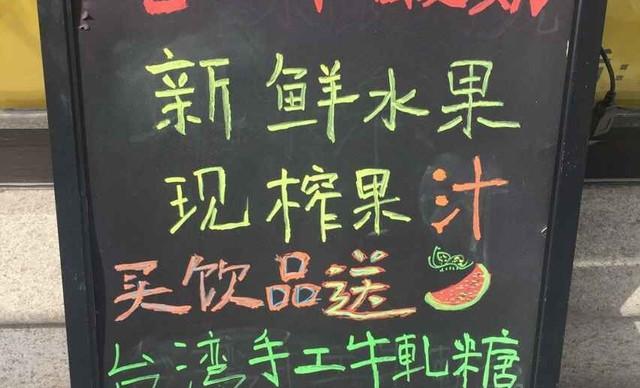 新鲜水果
现榨果汁
买饮品送
台湾手工牛軋糖